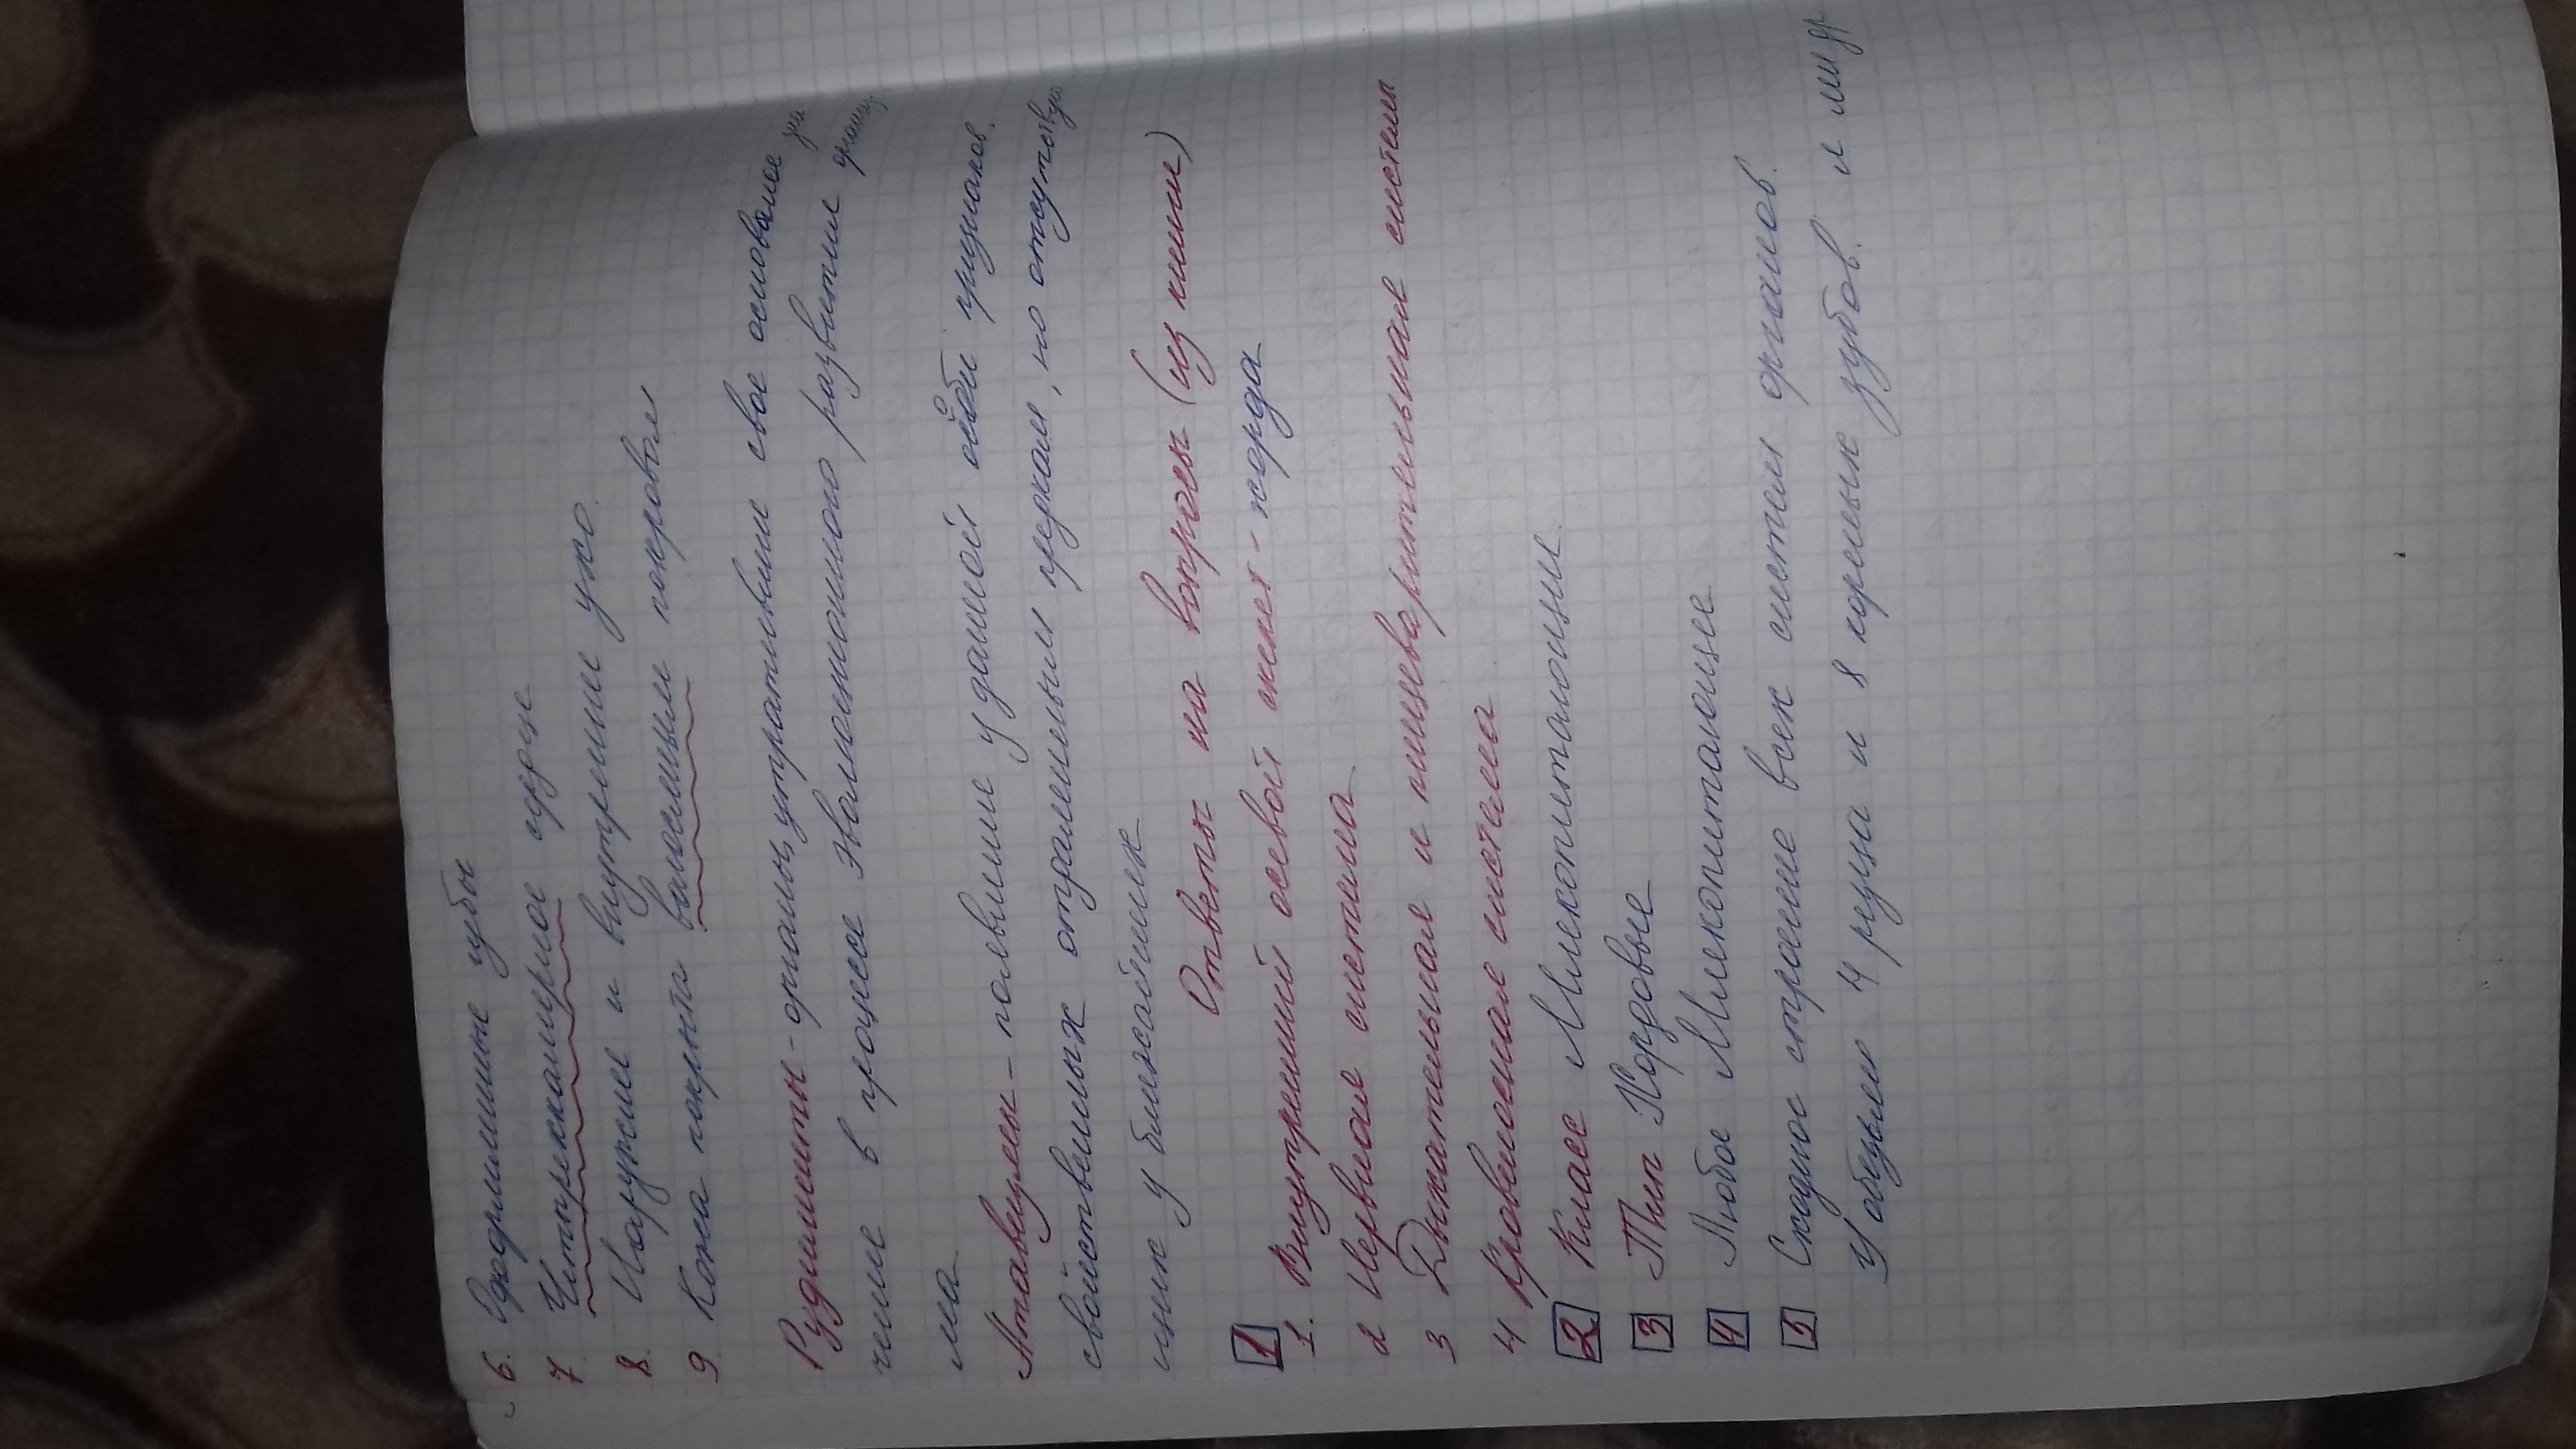 6. Оформленные губы
7 Четырехкамерное сердце
8. Наружнее и внутреннее ухо.
9 Кожа покрыта волосяным покровом
Рудименты - органы, утратившие свое основное зна
чение в процессе эволюционного развития организ
ма
Атавизмы - появление у данной особи признаков,
свойственных отдаленным предкам, но отсутствую
щих у ближайших
Ответы на вопросы (из книги)
1
1. Внутренний осевой скелет - хорда
2 Нервная система
3 Дыхательная и пищеварительная система
4 Кровеносная система
2 Класс Млекопитающие.
3 Тип Хордовые
4 Любое Млекопитающее
5 Сходное строение всех систем органов.
У обезьян 4 резца и 8 коренных зубов. и мн др